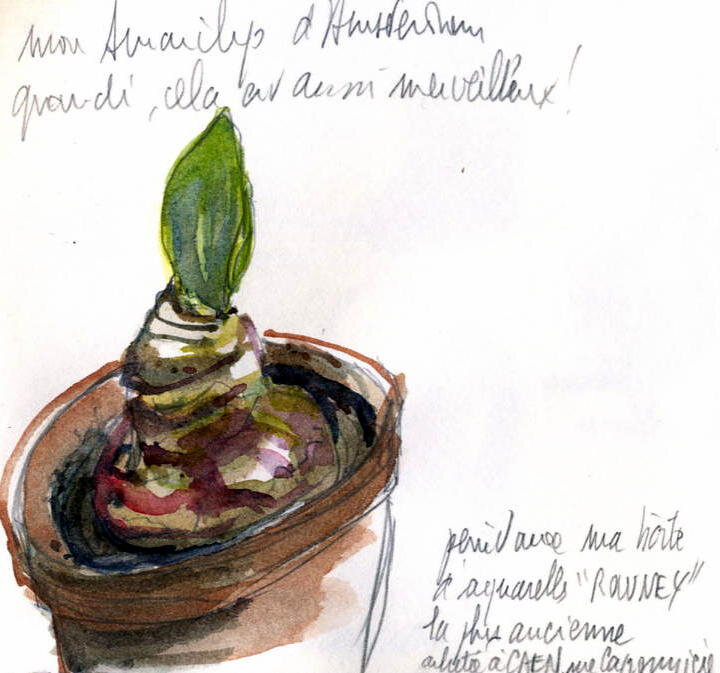 mon Amarilys d'Amsterdam
grandi, cela est aussi merveilleux!
peint avec ma boîte
d'aquarells "ROWNEY"
la plus ancienne
achetée à CAEN rue